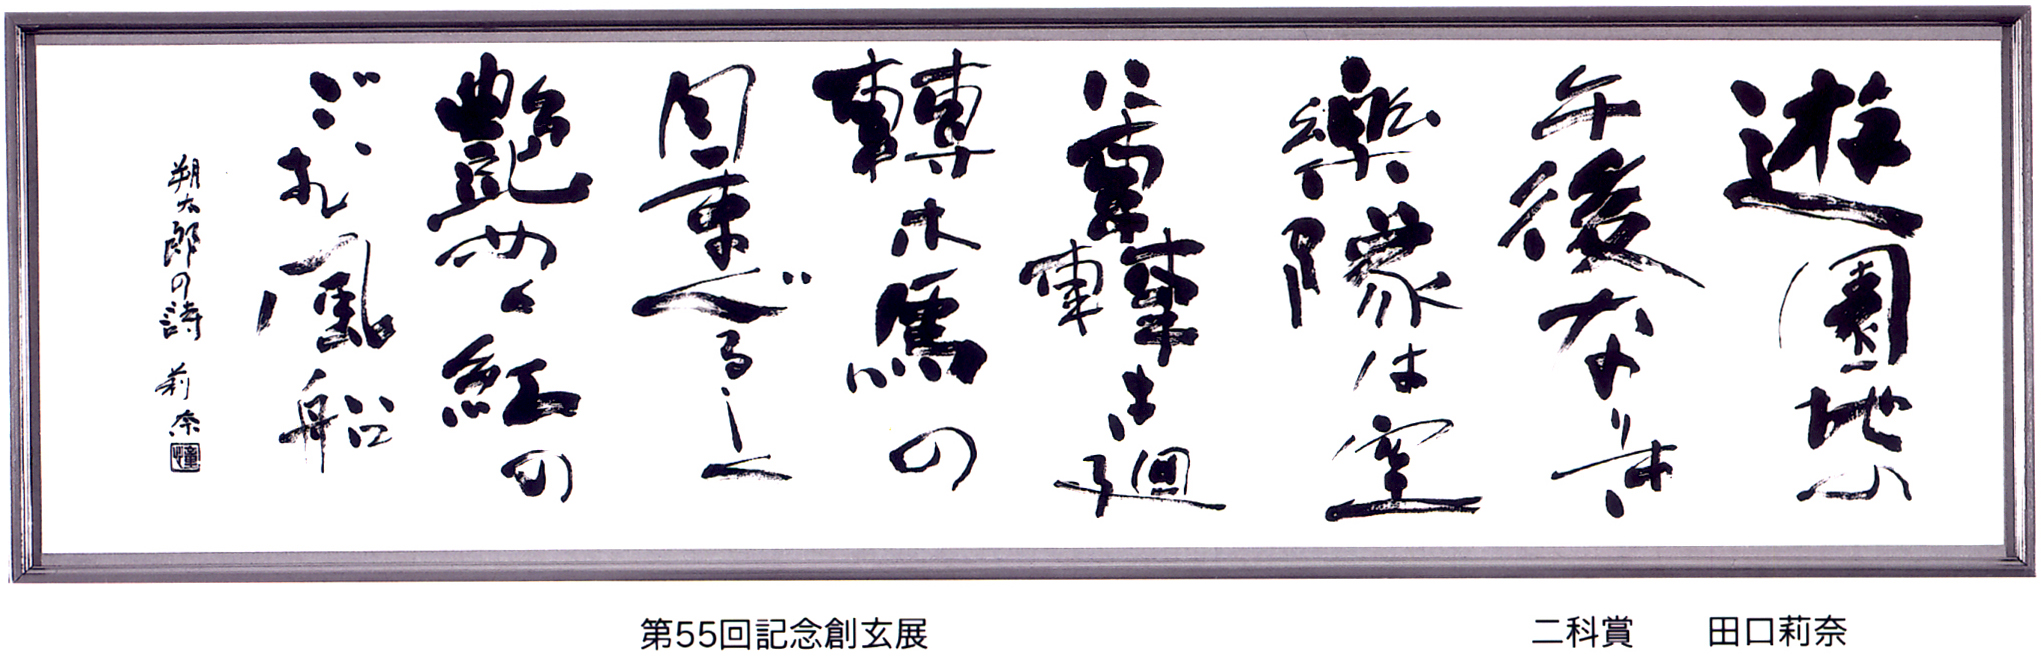 遊園地の
午後なりき
樂隊は空
に轟き廻
轉木馬の
目まぐるしく
艶めく紅の
ごむ風船
朔太郎の詩 莉奈
第55回記念創玄展 二科賞 田口莉奈